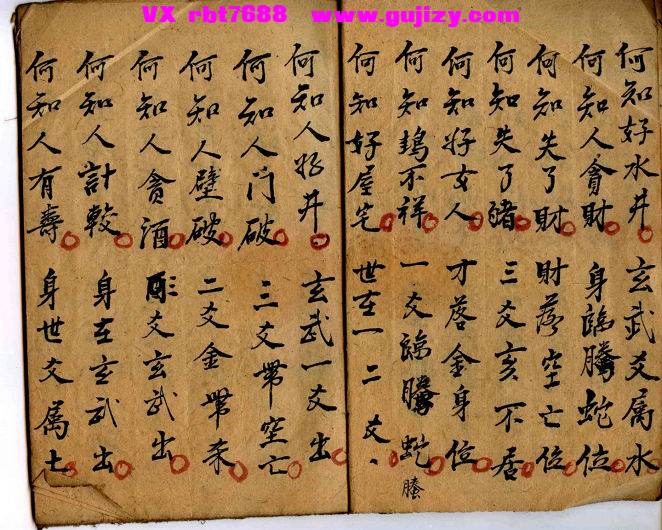 VX rbt7688 www.gujizy.com
何知好水井 玄武爻属水
何知人貪財 身臨騰蛇位
何知失了財 財落空亡位
何知失了豬 三爻亥不居
何知好女人 才落金身位
何知鵝不祥 一爻臨騰蛇
騰
何知好屋宅 世在一二爻
何知人好井 玄武一爻出
何知人门破 三爻带空亡
何知人壁破 二爻金带来
何知人貪酒 爻玄武出
何知人計較 身在玄武出
何知人有壽 身世爻属土